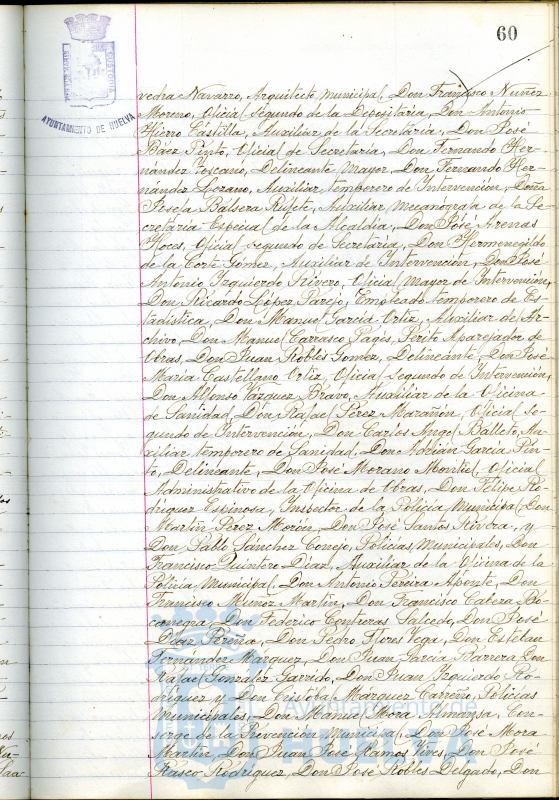 60
AYUNTAMIENTO DE HUELVA
vedra Navarro, Arquitecto Municipal, Don Francisco Nuñez
Moreno, Oficial Segundo de la Depositaria, Don Antonio
Hierro Castilla, Auxiliar de la Secretaría, Don José
Báez Pinto, Oficial de Secretaría, Don Fernando Her-
nández Toscano, Delineante Mayor, Don Fernando Her-
nández Lozano, Auxiliar temporero de Intervención, Doña
Josefa Bálsera Rufete, Auxiliar mecanógrafa de la Se-
cretaría Especial de la Alcaldía, Don José Arenas
Yoces, Oficial segundo de Secretaría, Don Hermenegildo
de la Corte Gómez, Auxiliar de Intervención, Don José
Antonio Izquierdo Rivero, Oficial Mayor de Intervención,
Don Ricardo López Parejo, Empleado temporero de Es-
tadística, Don Manuel García Ortiz, Auxiliar de Ar-
chivo, Don Manuel Carrasco Pagés, Perito Aparejador de
Obras, Don Juan Robles Gómez, Delineante, Don José
María Castellano Ortiz, Oficial Segundo de Intervención,
Don Alfonso Vázquez Bravo, Auxiliar de la Oficina
de Sanidad, Don Rafael Pérez Marañón, Oficial Se-
gundo de Intervención, Don Carlos Angel Balleto, Au-
xiliar temporero de Sanidad, Don Adrián García Pin-
to, Delineante, Don José Morano Montiel, Oficial
Administrativo de la Oficina de Obras, Don Felipe Ro-
dríguez Espinosa, Inspector de la Policía Municipal, Don
Martín Pérez Morón, Don José Santos Rivera, y
Don Pablo Sánchez Conejo, Policías Municipales, Don
Francisco Quintero Díaz, Auxiliar de la Oficina de la
Policía Municipal, Don Antonio Pereira Aponte, Don
Francisco Muñoz Martín, Don Francisco Cabeza Bo-
canegra, Don Federico Contreras Salcedo, Don José
Díaz Pereña, Don Pedro Flores Vega, Don Esteban
Fernandez Márquez, Don Juan García Barrera, Don
Rafael González Garrido, Don Juan Izquierdo Ro-
dríguez y Don Cristobal Marquez Carreño, Policías
Municipales, Don Manuel Mora Almansa, Con-
serge de la Prevención Municipal, Don José Mora
Martín, Don Juan José Ramos Vives, Don José
Rasco Rodríguez, Don José Robles Delgado, Don
Ayuntamiento de
HUELVA